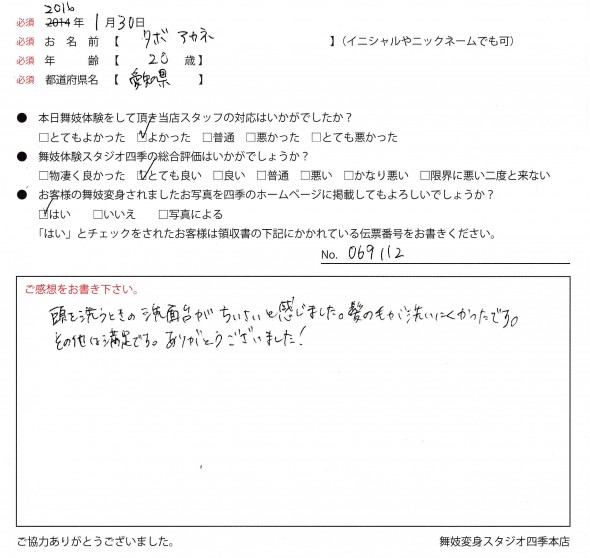 2016
必須 2014年 1月30日
必須 お 名 前 【 クボ アカネ 】(イニシャルやニックネームでも可)
必須 年 齢 【 20 歳】
必須 都道府県名 【 愛知県 】
● 本日舞妓体験をして頂き当店スタッフの対応はいかがでしたか?
□とてもよかった ☑よかった □普通 □悪かった □とても悪かった
● 舞妓体験スタジオ四季の総合評価はいかがでしょうか?
□物凄く良かった ☑とても良い □良い □普通 □悪い □かなり悪い □限界に悪い二度と来ない
● お客様の舞妓変身されましたお写真を四季のホームページに掲載してもよろしいでしょうか?
☑はい □いいえ □写真による
「はい」とチェックをされたお客様は領収書の下記にかかれている伝票番号をお書きください。
No. 069112
ご感想をお書き下さい。
頭を洗うときの洗面台がちいさいと感じました。髪の毛が洗いにくかったです。
その他は満足です。ありがとうございました!
ご協力ありがとうございました。 舞妓変身スタジオ四季本店